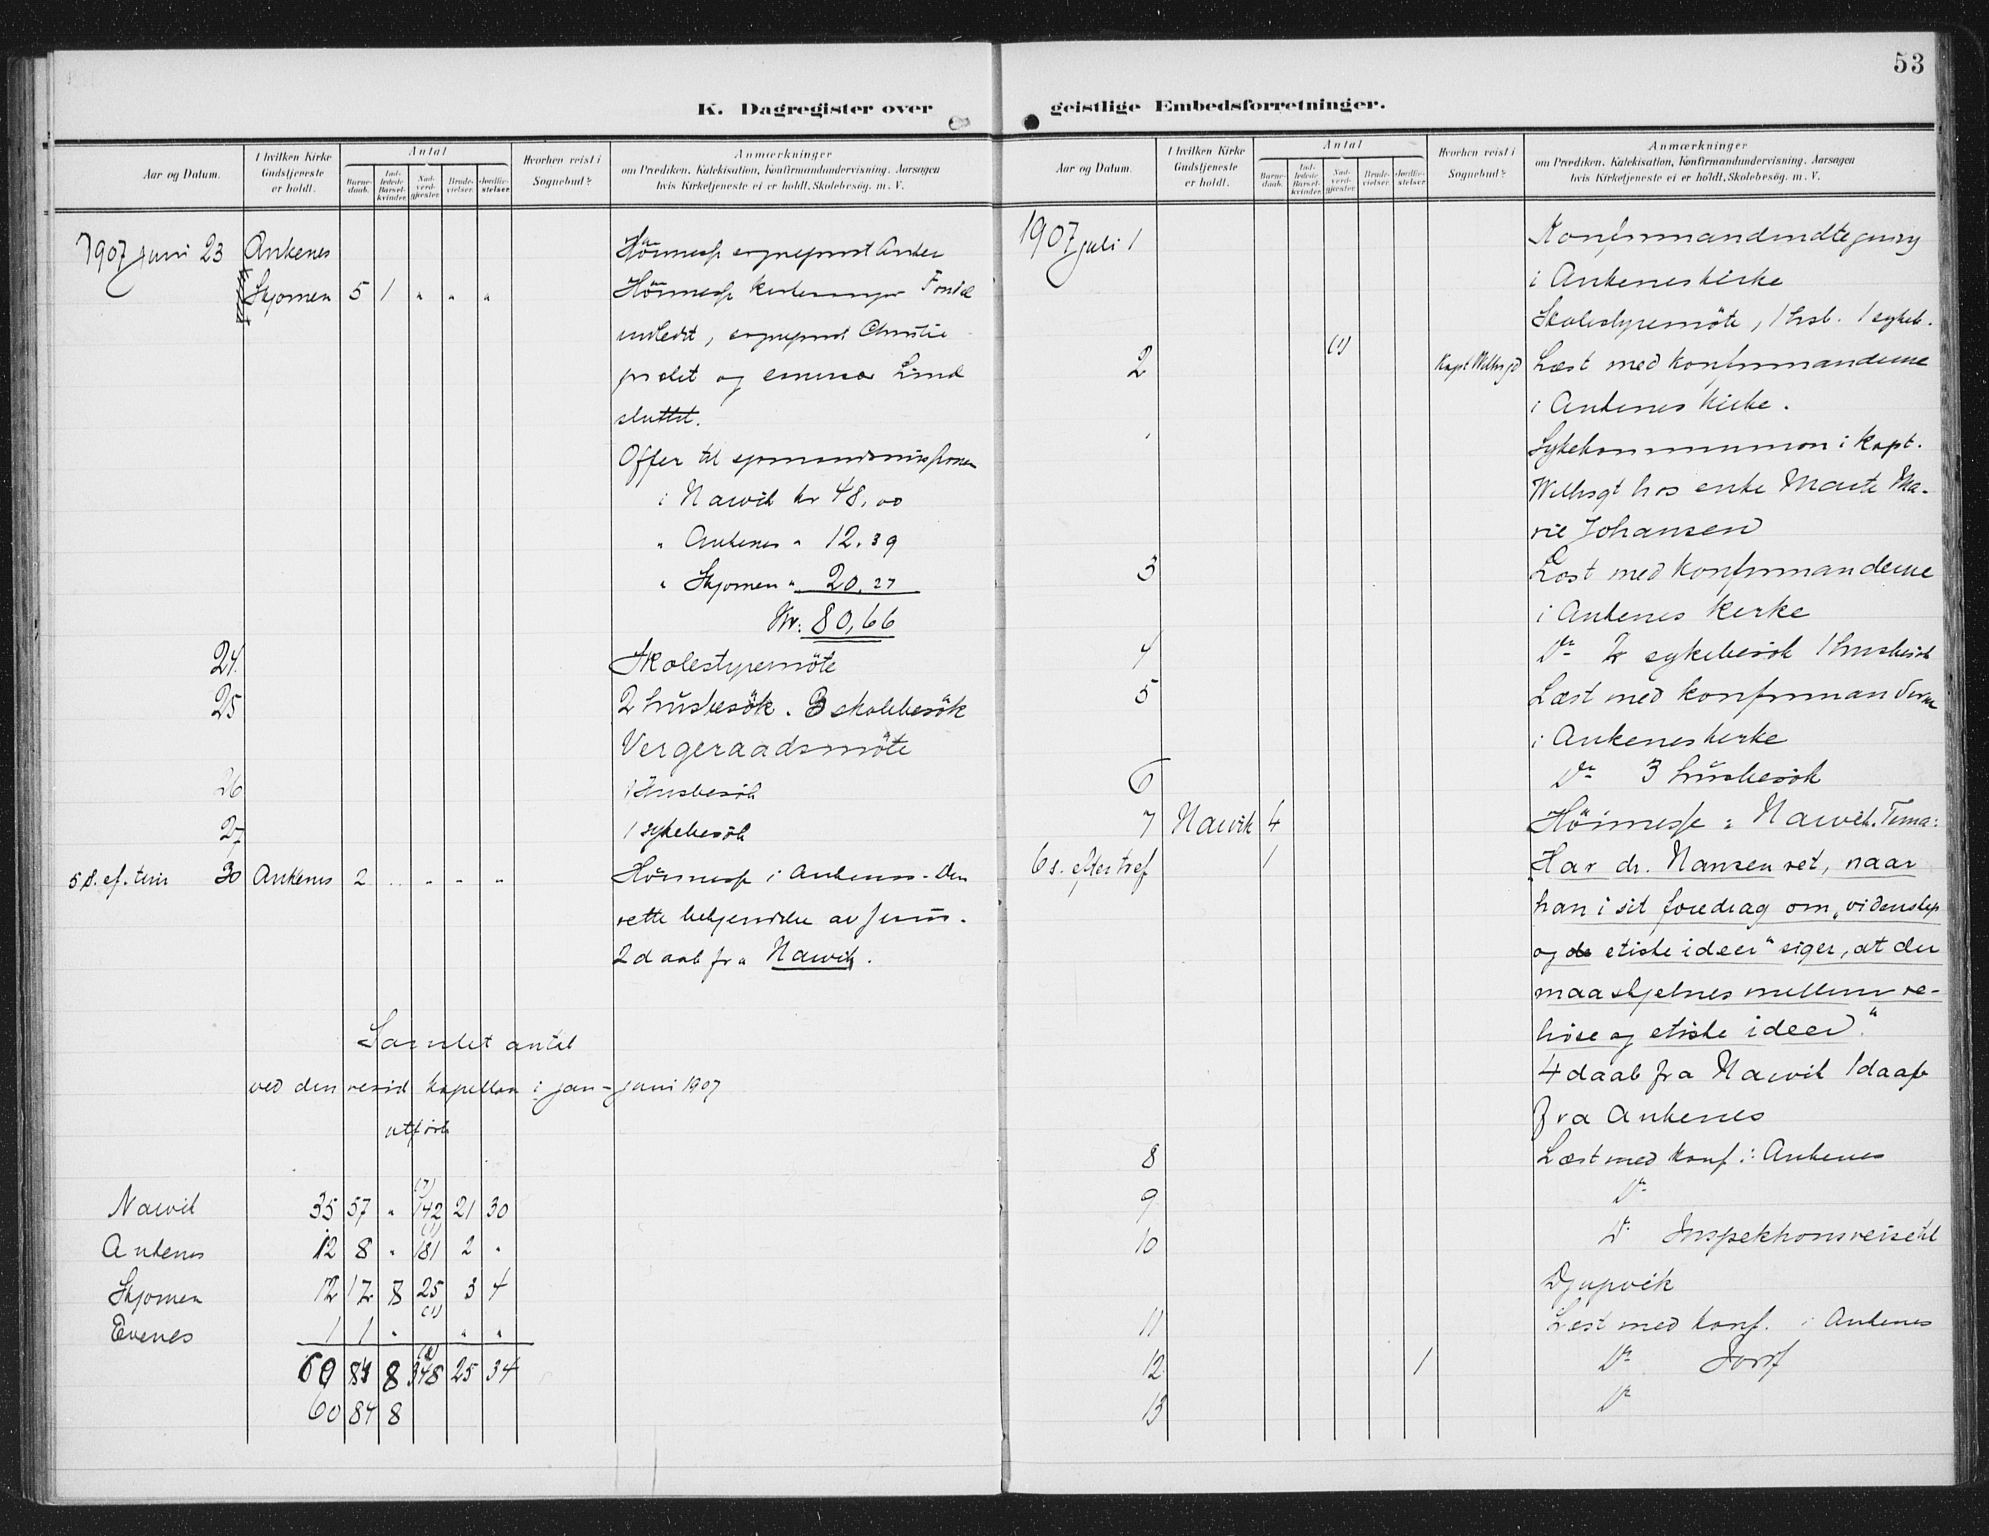 53
K. Dagregister over
geistlige Embedsforretninger.
Aar og Datum.
I hvilken Kirke Gudstjeneste er holdt.
Antal
Barnedaab.
Indledede Barselkvinder.
Nadverdgjester.
Brudevielser.
Jordfæstelser.
Hvorhen reist i Sognebud?
Anmærkninger
om Prædiken, Katekisation, Konfirmandundervisning. Aarsagen
hvis Kirketjeneste ei er holdt, Skolebesög. m. V.
1907 juni 23 Ankenes Höimesse sogneprest
Skjomen 5 1 " " " Höimesse
indledet, sogneprest Christie
og Lind
sluttet.
Offer til sjømandsmissionen
i Narvik kr 48,00
" Ankenes " 12.39
" Skjomen " 20.27
Kr. 80,66
24. Skolestyremöte
25 2 husbesök. 3 skolebesök
Vergeraadsmöte
26 1 husbesök
27 1 sykebesök
5 s. ef. trin 30 Ankenes 2 " " " " Höimesse i Ankenes. Den
rette bekjendelse av Jesus.
2 daab fra Narvik.
Samlet antal
ved den resid kapellan i jan - juni 1907
utført
(7)
Narvik 35 57 " 142 21 30
(1)
Ankenes 12 8 " 181 2 "
Skjomen 12 17 8 25 3 4
(1)
Evenes 1 1 " " "
60 84 8 348 25 34
60 84 8
Aar og Datum.
I hvilken Kirke Gudstjeneste er holdt.
Antal
Barnedaab.
Indledede Barselkvinder.
Nadverdgjester.
Brudevielser.
Jordfæstelser.
Hvorhen reist i Sognebud?
Anmærkninger
om Prædiken, Katekisation, Konfirmandundervisning. Aarsagen
hvis Kirketjeneste ei er holdt, Skolebesög. m. V.
1907 juli 1 Konfirmandindtegning
i Ankenes kirke
Skolestyremöte, 1 husb. 1 sykeb.
2 (1) Læst med konfirmanderne
i Ankenes kirke.
Sykekommunion i Kapt.
hos enke Marte Ma-
rie Johansen
3 Læst med konfirmanderne
i Ankenes kirke
4 Do 2 sykebesök 1 husbesök
5 Læst med konfirmanderne
i Ankenes kirke
6 Do 3 husbesök
7 Narvik 4 Höimesse i Narvik. Tema:
6 s. efter tref 1 "Har dr. Nansen ret, naar
han i sit foredrag om "videnskap
og de etiske ideer" siger, at der
maa skjelnes mellem re-
liöse og etiske ideer."
4 daab fra Narvik 1 daab
fra Ankenes
8 Læst med konf. i Ankenes
9 Do
10 Do Inspektionsreise til
Djupvik
11 Læst med konf. i Ankenes
12 1 Do Jordf
13 Do